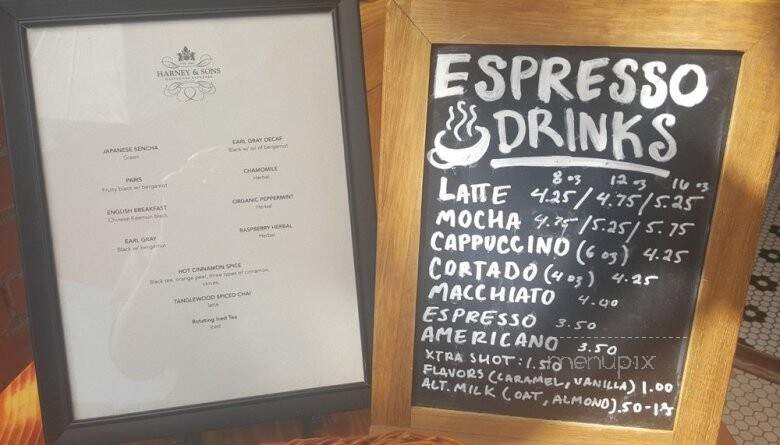 HARNEY & SONS
JAPANESE SENCHA
Green
PARIS
Fruity black w/ bergamot
ENGLISH BREAKFAST
Chinese Keemun black
EARL GRAY
Black w/ bergamot
EARL GRAY DECAF
Black w/ oil of bergamot
CHAMOMILE
Herbal
ORGANIC PEPPERMINT
Herbal
RASPBERRY HERBAL
Herbal
HOT CINNAMON SPICE
Black tea, orange peel, three types of cinnamon,
cloves,
TANGLEWOOD SPICED CHAI
latte
Rotating Iced Tea
Iced
ESPRESSO
DRINKS
8 oz 12 oz 16 oz
LATTE 4.25/4.75/5.25
MOCHA 4.75/5.25/5.75
CAPPUCCINO (6 oz) 4.25
CORTADO (4 oz) 4.25
MACCHIATO 4.00
ESPRESSO 3.50
AMERICANO 3.50
XTRA SHOT: 1.50
FLAVORS (CARAMEL, VANILLA) 1.00
ALT. MILK (OAT, ALMOND) .50-
menupix